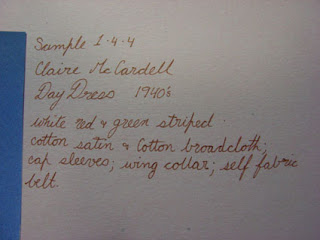 Sample 1·4·4
Claire McCardell
Day Dress 1940's
white red & green striped
cotton satin & Cotton broadcloth;
cap sleeves; wing collar; self fabric
belt.